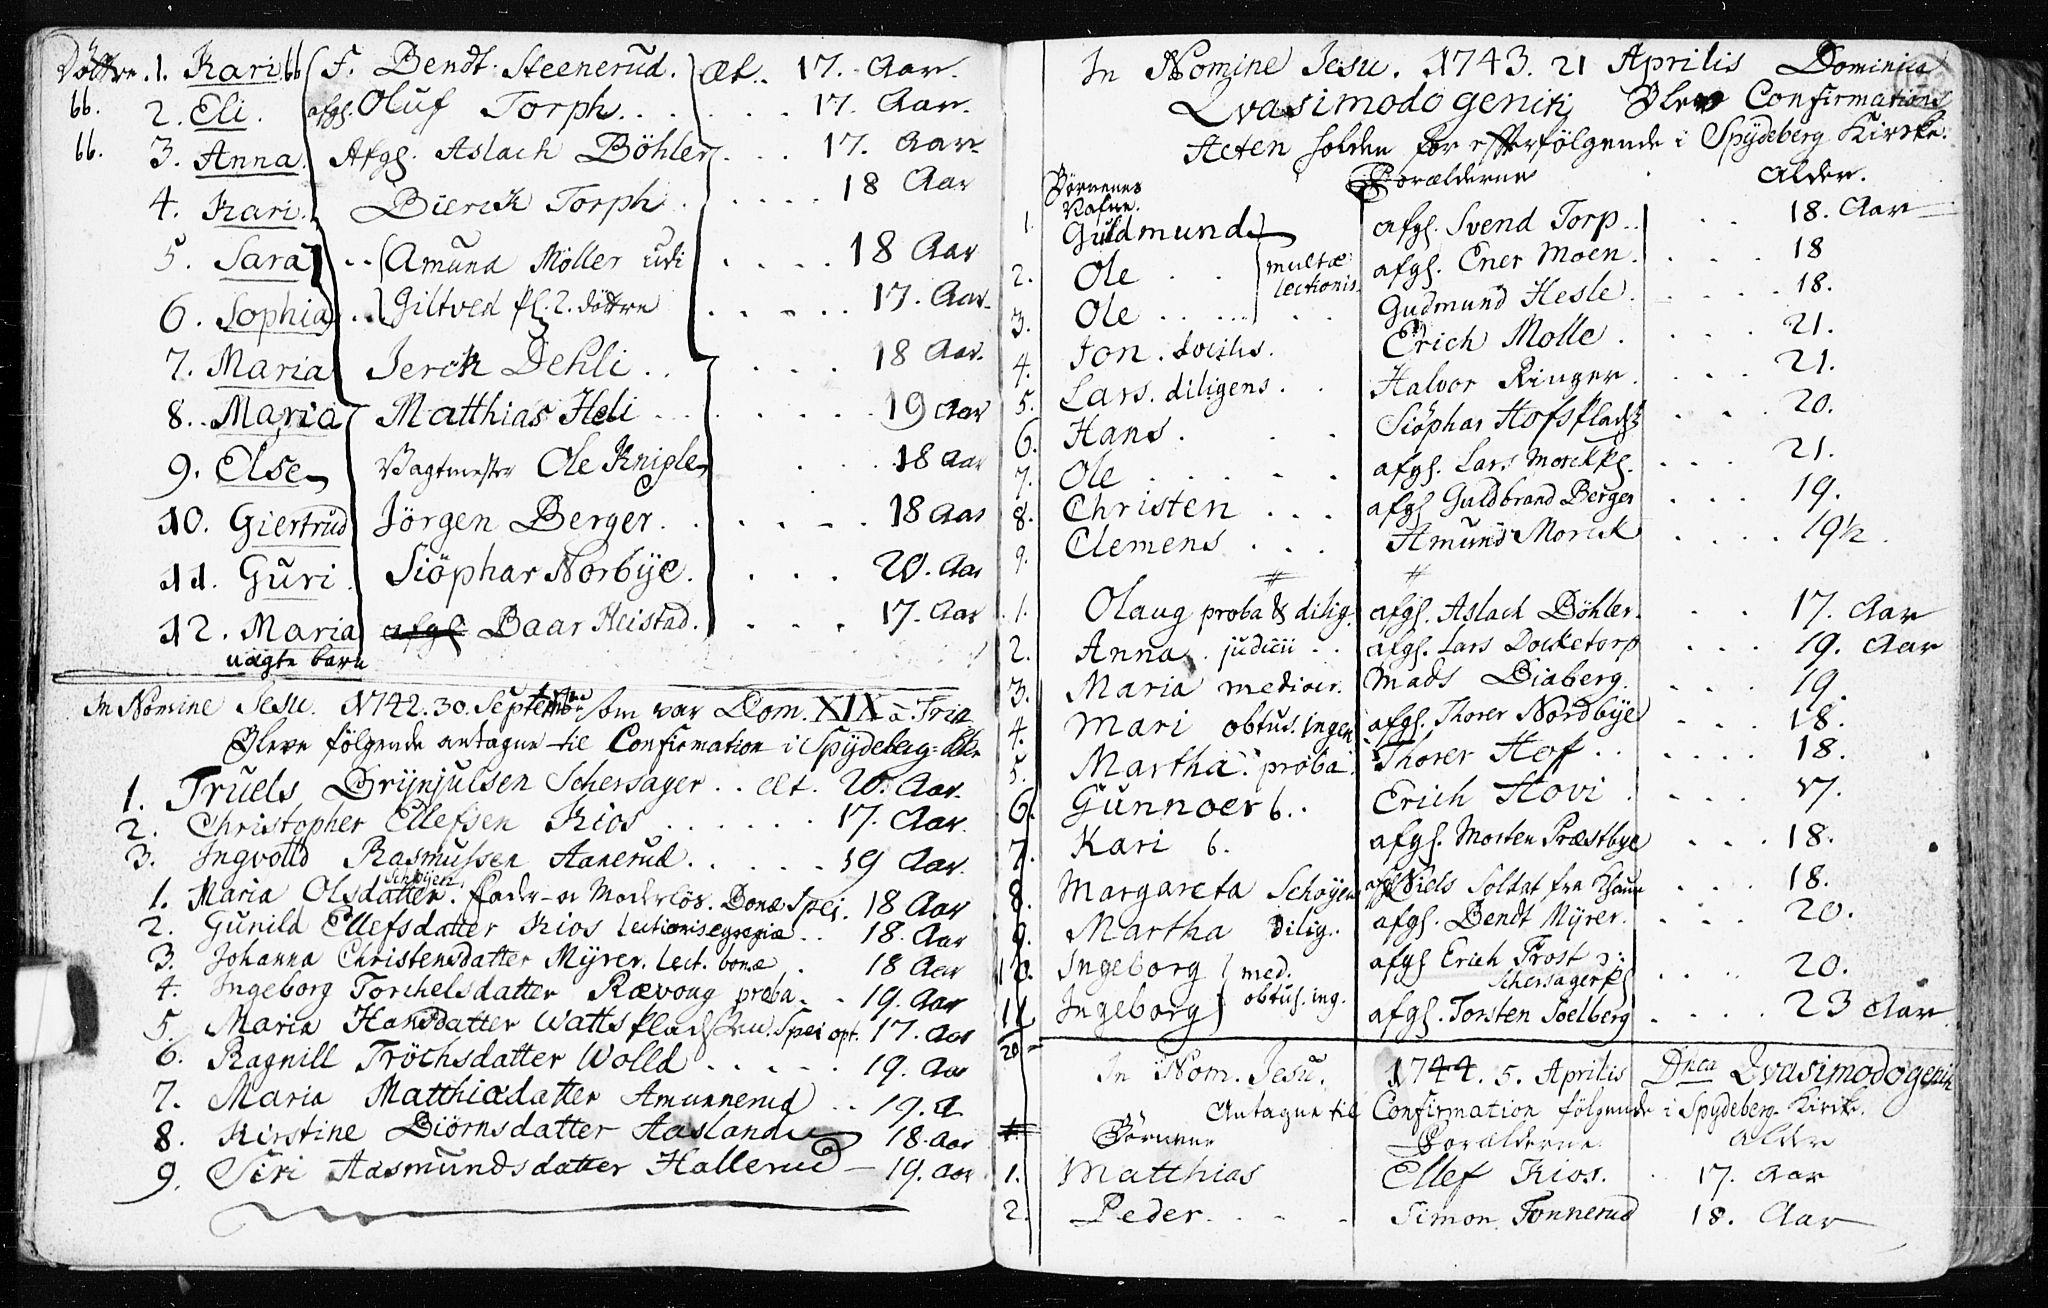 Döttre. 1. Kari 66 F. Bendt Steenerud. æt. 17. Aar.
66. 2. Eli. afgl. Oluf Torph. 17. Aar.
66. 3. Anna. Afgl. Aslach Böhler 17. Aar.
4. Kari. Bierck Torph 18 Aar
5. Sara Amund Möller udi 18 Aar
6. Sophia Giltved pl: 2. döttre 17. Aar.
7. Maria Jerck Dehli 18 Aar.
8. Maria Matthias Heli 19 Aar
9. Else Vagtmester Ole Knipler 18 Aar
10. Giertrud Jörgen Berger. 18 Aar
11. Guri. Siöphar Norbÿe. 20. Aar
12. Maria afgl Baar Heistad. 17. Aar
uægte barn
In Nomine Jesu. 1742. 30. Septembr som var Dom. XIX à Trin.
Bleve fölgende antagne til Confirmation i Spÿdeberg Kirke
1. Truels Brÿnjulsen Schersager. æt. 20. Aar.
2. Christopher Ellefsen Kios 17. Aar.
3. Ingvolld Rasmussen Aanerud. 19 Aar.
1. Maria Olsdatter Schöyen. fader- og Moderlös. Bonæ Spei. 18 Aar
2. Gunild Ellefsdatter Kios lectionis egregiæ 18. Aar
3. Johanna Christensdatter Mÿrer. lect. bonæ 18 Aar
4. Ingeborg Torchelsdatter Rævoug proba 19. Aar
5. Maria Hansdatter Watts plads Spei opt. 17. Aar
6. Ragnill Tröchsdatter Wolld 19. Aar
7. Maria Matthiædatter Amunnerud 19. A
8. Kirstine Biörnsdatter Aasland 18. Aar
9. Siri Aasmundsdatter Hallerud 19. Aar
In Nomine Jesu. 1743. 21 Aprilis Dominica
Qvasimodogeniti Blev Confirmations
Acten holden for efterfölgende i Spÿdeberg Kircke.
Börnenes Nafne. Forælderne Alder.
1. Guldmund afgl. Svend Torp 18. Aar
2. Ole multæ afgl. Ener Moen. 18
3. Ole lectionis. Gudmund Hesle. 18.
4. Jon. docilis. Erich Molle. 21.
5. Lars. diligens. Halvor Ringer. 21.
6. Hans. Siöphar Hofsplads 20.
7. Ole afgl. Lars Morckpl. 21.
8. Christen afgl Guldbrand Berger 19.
9. Clemens Amund Morck 19½.
1. Olaug proba & dilig. afgl. Aslach Böhler. 17. Aar
2. Anna. judicii afgl. Lars Docketorp 19. Aar
3. Maria mediocr. Mads Biaberg. 19.
4. Mari obtus. ingen afgl. Thorer Nordbÿe 18.
5. Martha. proba. Thorer Hof 18.
6. Gunnoer b. Erich Hovi 17.
7. Kari b. afgl. Morten Præstbye 18.
8. Margareta Schoyen afgl Niels Soldat fra 18.
9. Martha Dilig. afgl. Bendt Mÿrer. 20.
10. Ingeborg med. afgl Erich Trost Schersagerpl 20.
11. Ingeborg obtus. ing. afgl. Torsten Soelberg 23 Aar.
20
In Nom. Jesu. 1744. 5. Aprilis Dnca Qvasimodogenit
Antagne til Confirmation fölgende i Spydeberg Kircke.
Börnene Forælderne Alder
1. Matthias Ellef Kios. 17. Aar
2. Peder. Simon Tonnerud 18. Aar